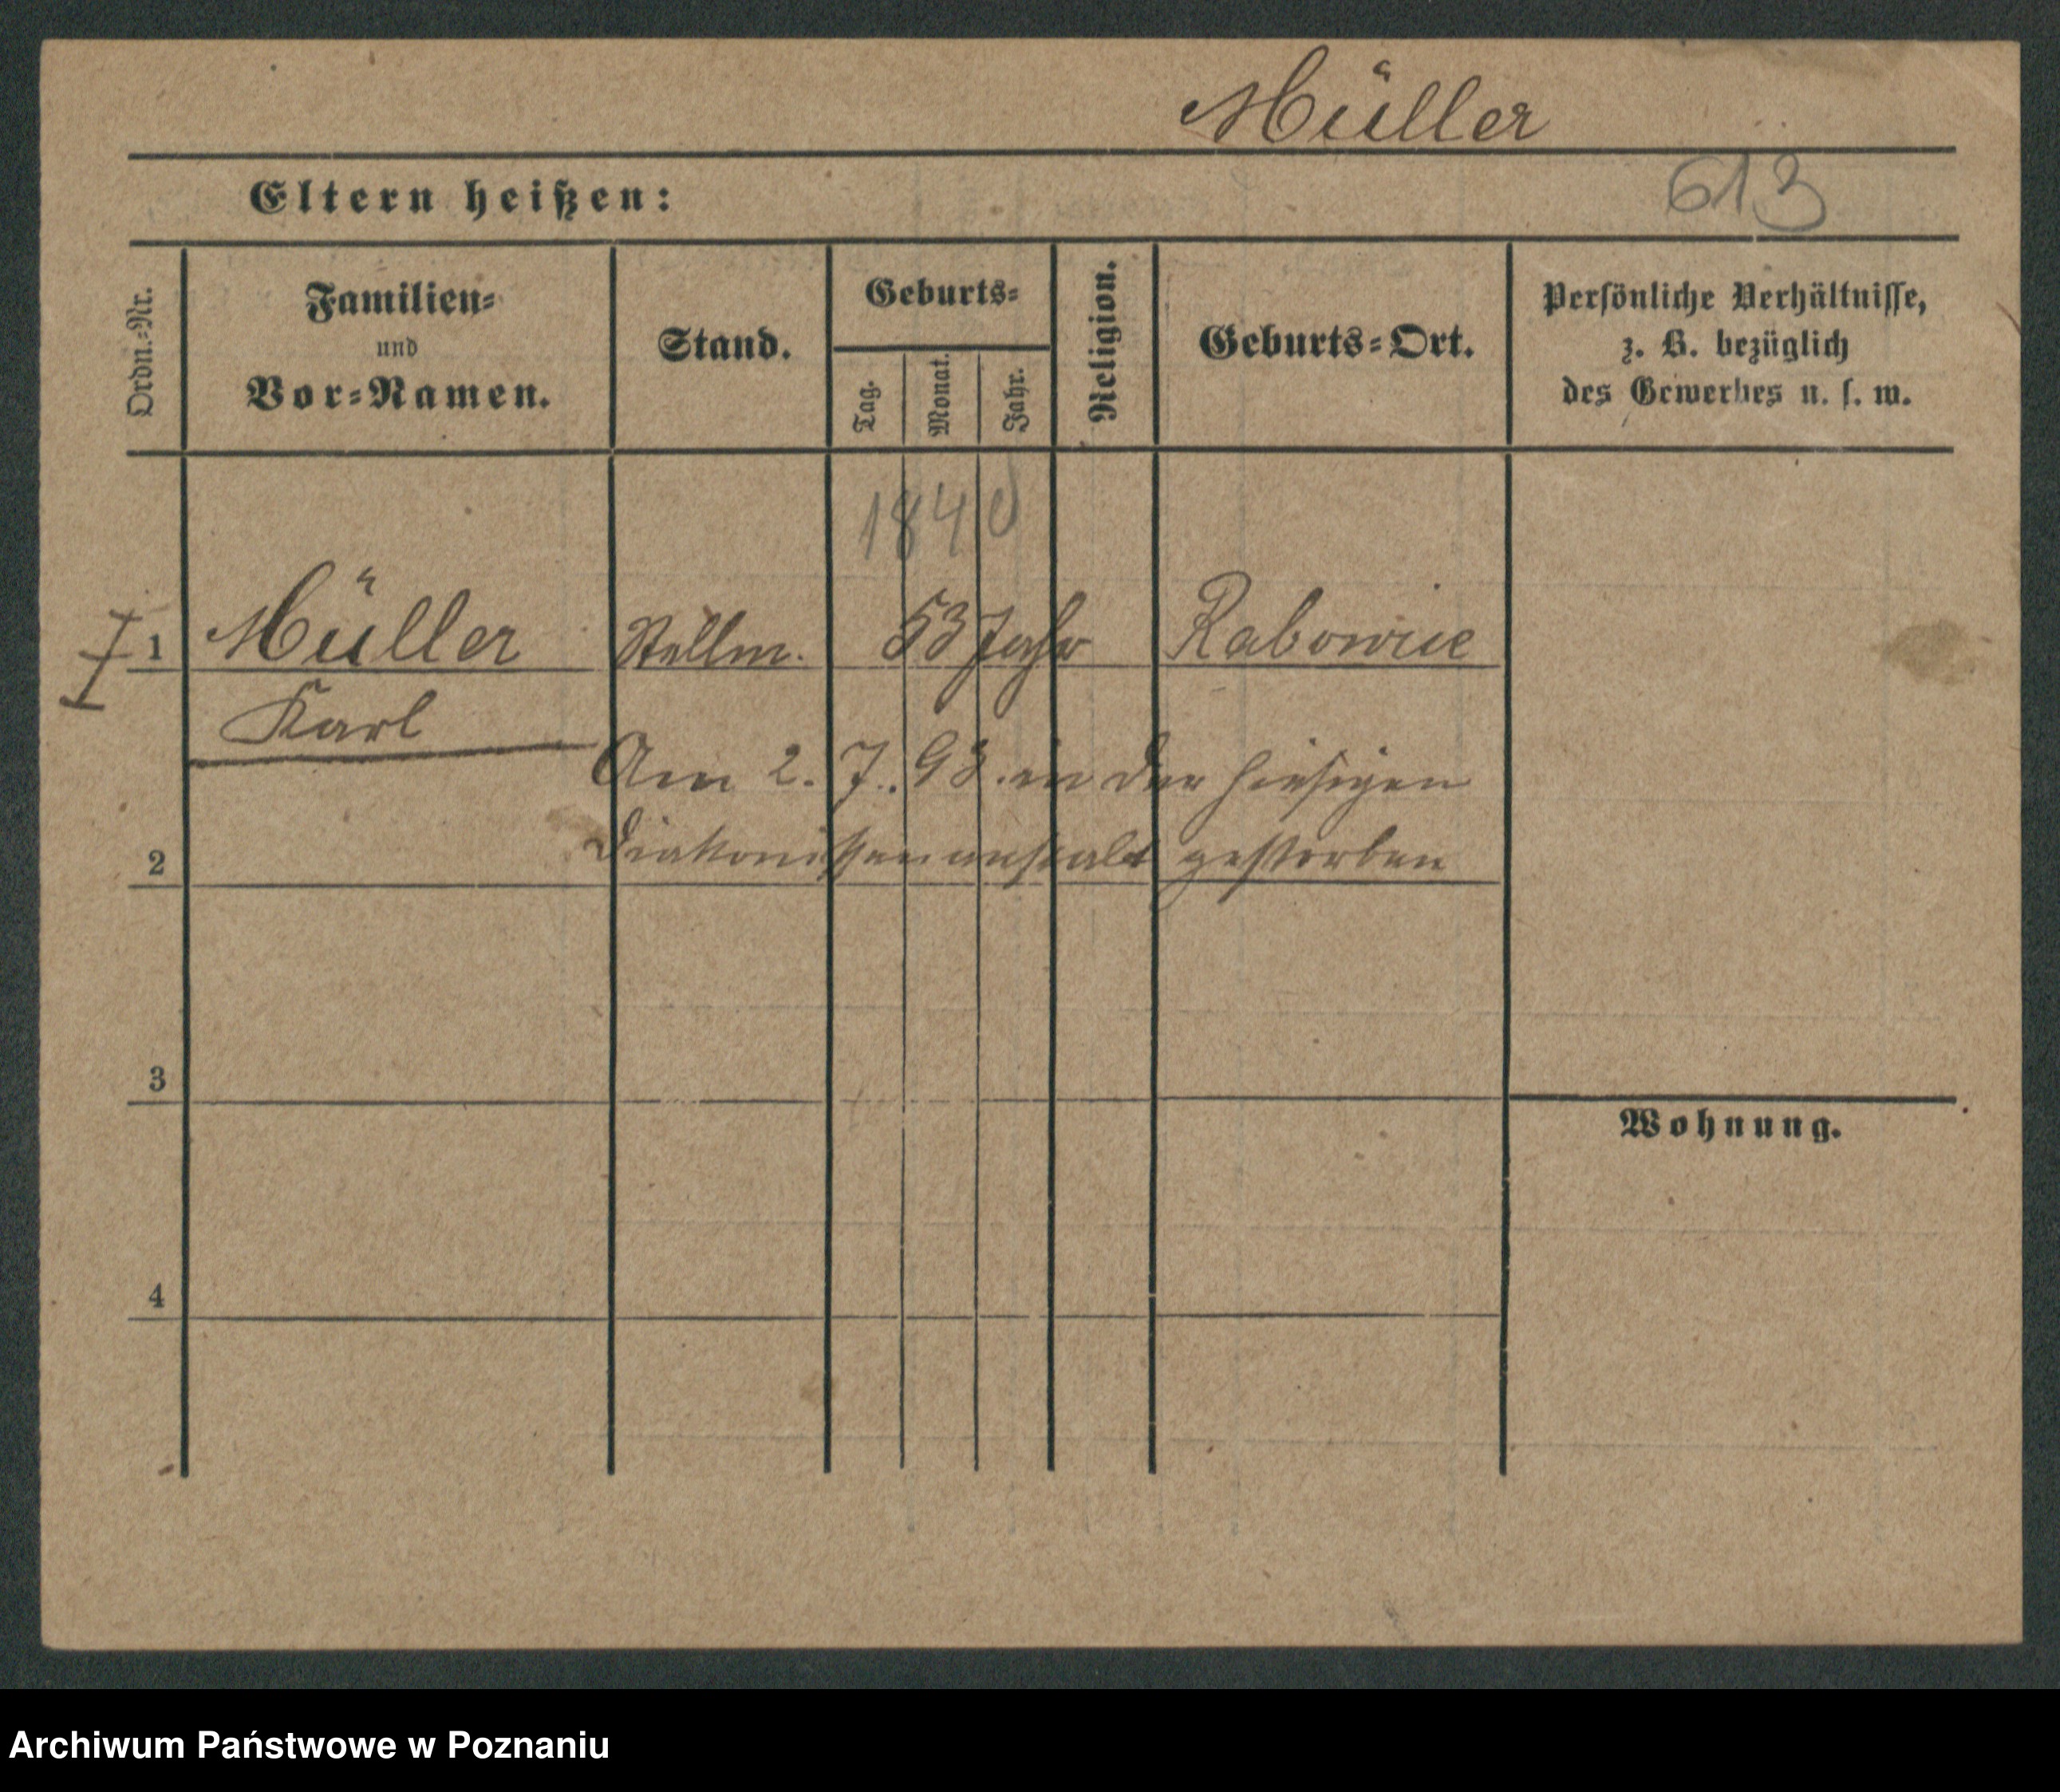 Müller
Eltern heißen:
613
Ordn.=Nr.
Familien=
und
Vor=Namen.
Stand.
Geburts=
Tag.
Monat.
Jahr.
Religion.
Geburts=Ort.
Persönliche Verhältnisse,
z. B. bezüglich
des Gewerbes u. s. w.
1840
1 Müller Stellm. 53 Jahr Rabowice
Karl
Am 2. 7. 93. in der hiesigen
2 Diakonissenanstalt gestorben
3
Wohnung.
4
Archiwum Państwowe w Poznaniu